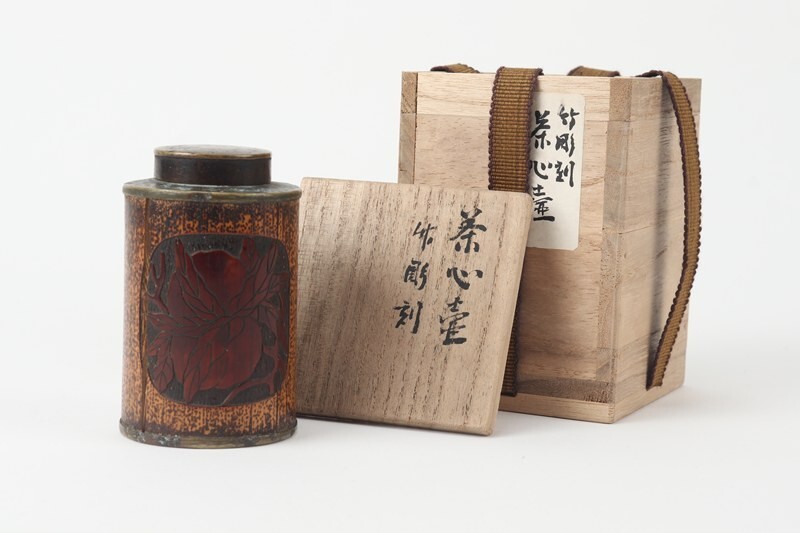 茶心壷
竹彫刻
竹彫刻
茶心壷